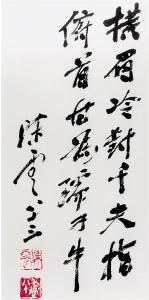 横眉冷对千夫指
俯首甘為孺子牛
陈云